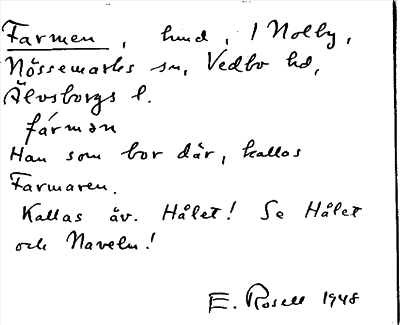 Farmen, hmd, 1 Nolby,
Nössemarks sn, Vedbo hd,
Älvsborgs l.
fármən
Han som bor där, kallas
Farmaren.
Kallas äv. Hålet! Se Hålet
och Naveln!
E. Rosell 1948